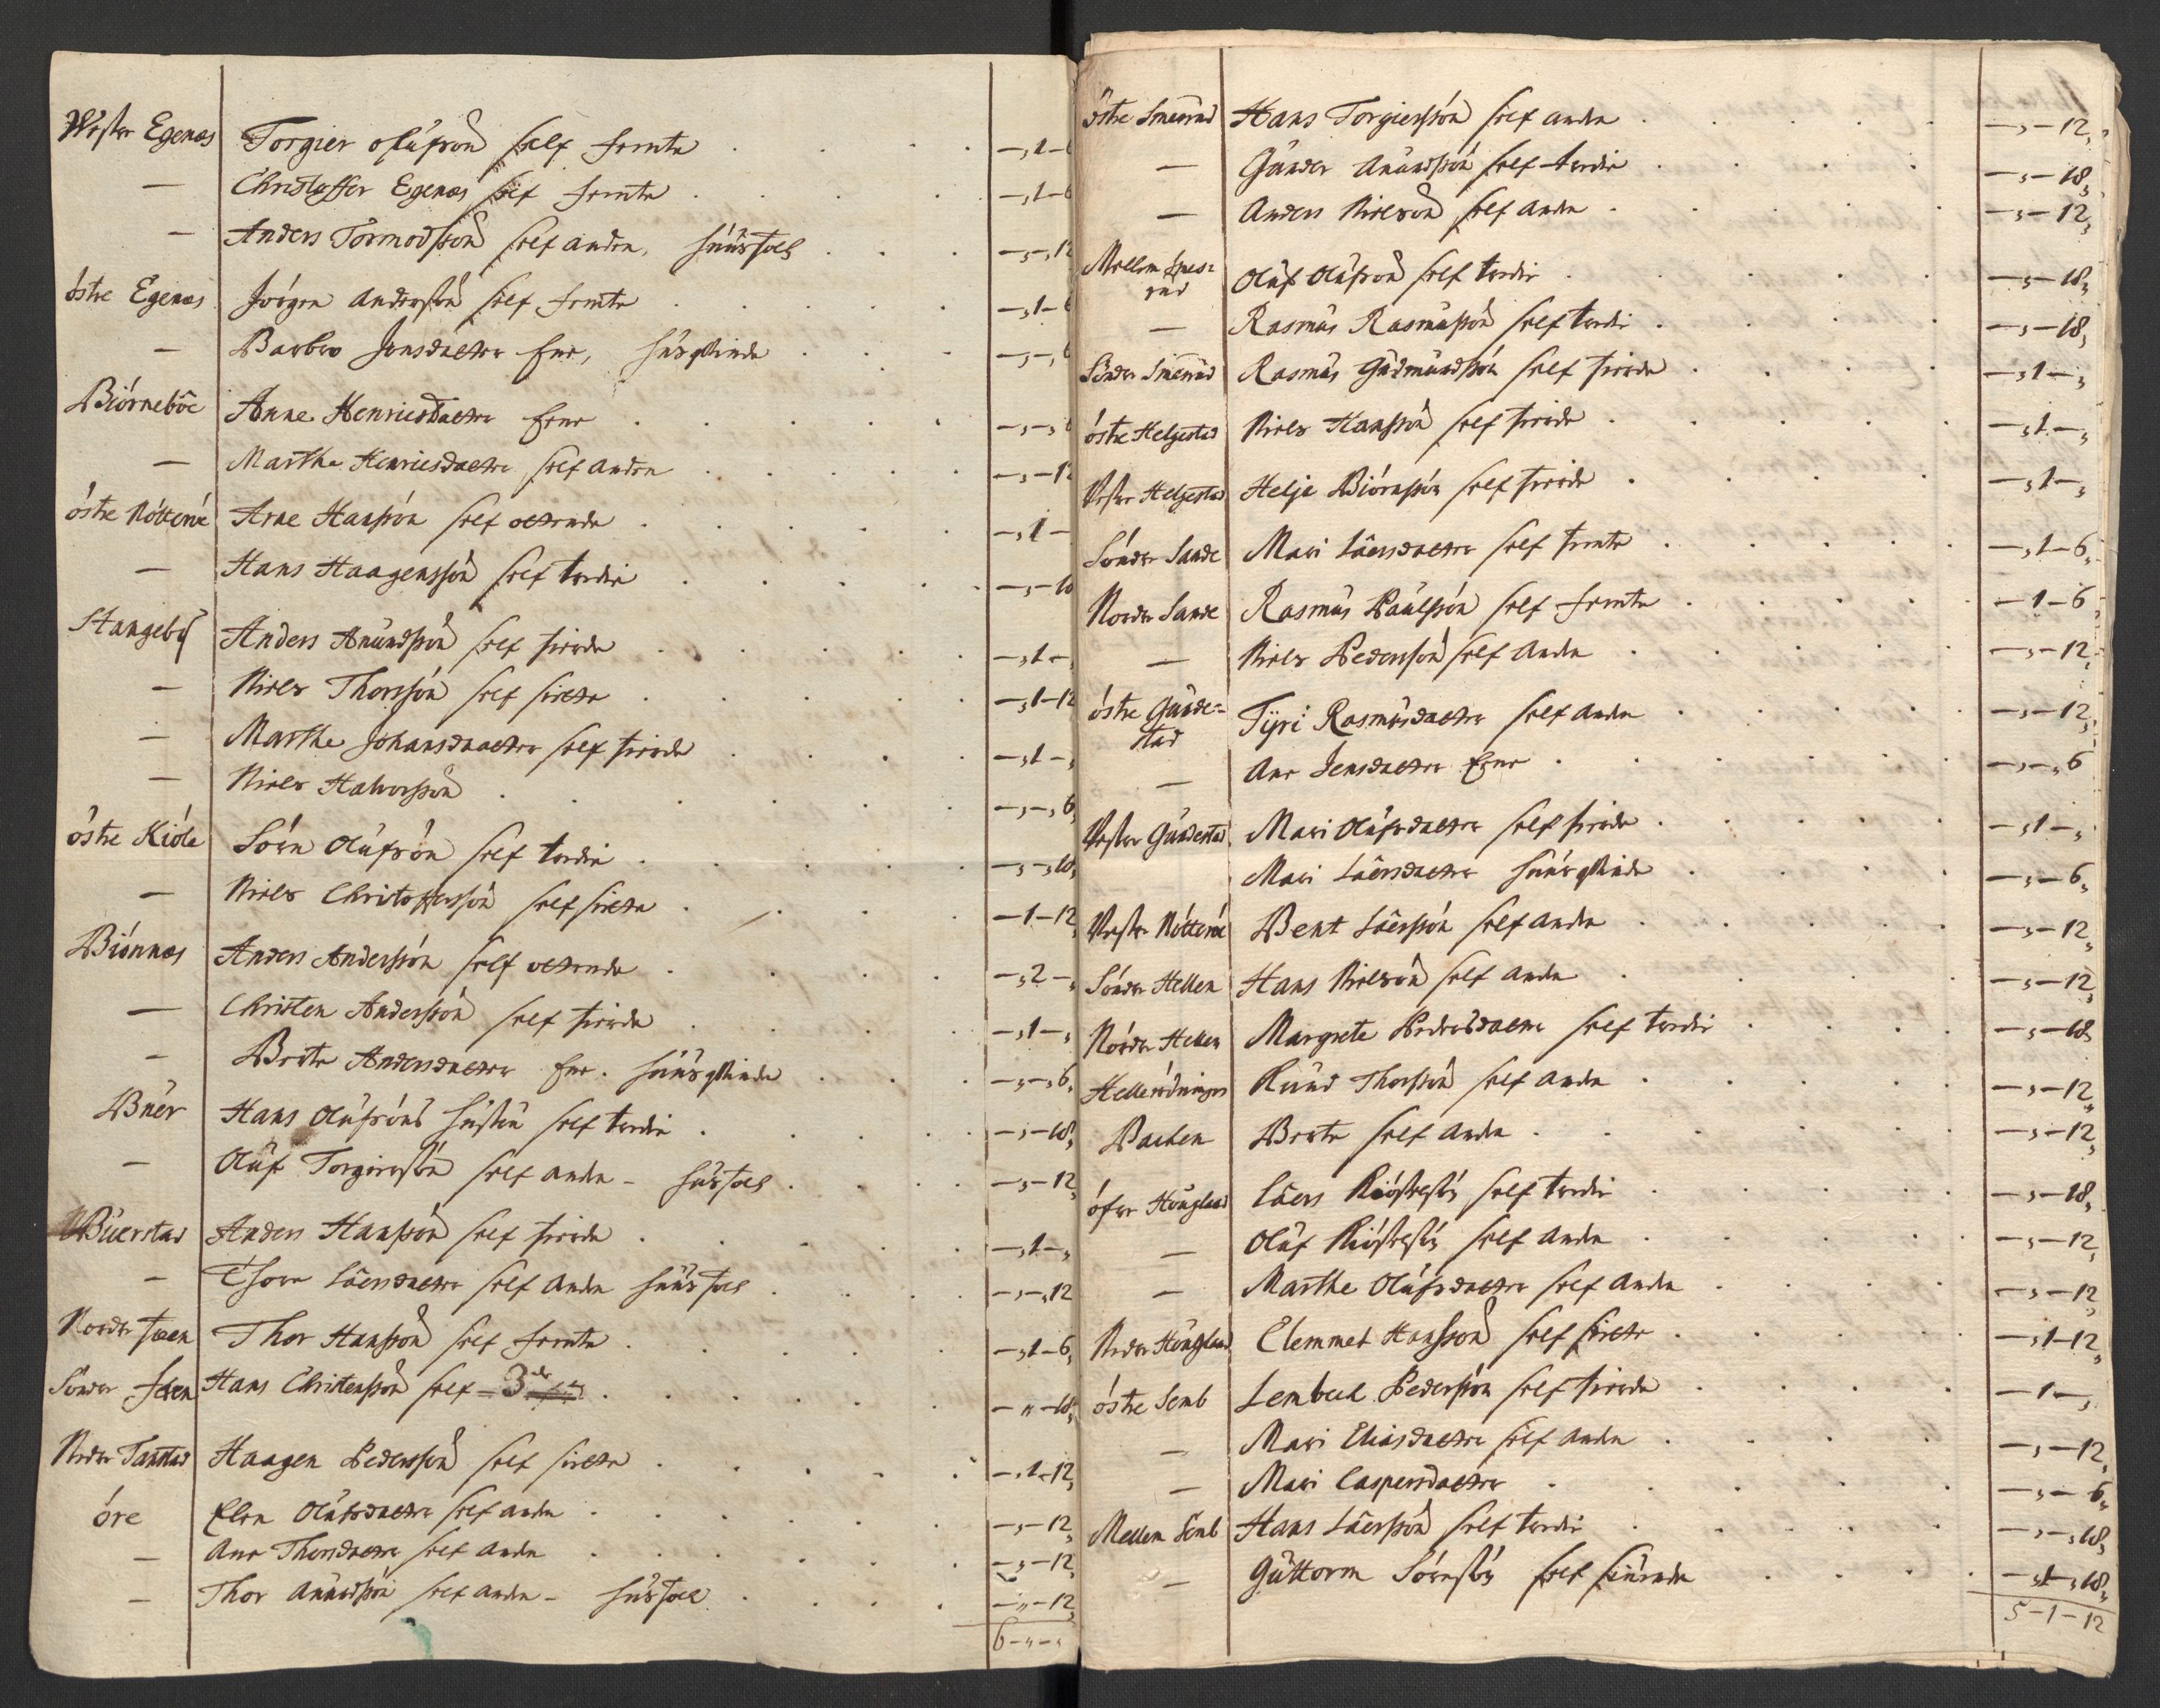 Wester Egenæs Torgier olufsøn self femte -,1-6
— Christoffer Egenæs self femte -,1-6
— Anders Tormodssøn self anden, huusfolk -,-,12
östre Egenæs Jørgen Anderssøn self femte -,1-6
— Barbro Jensdaatter Ene, husqvinde -,-,6
Biörneböe Anne Henricsdaatter Ene -,-,6
— Marthe Henricsdaatter self anden -,-12
östre Nötteröe Arne Hanssøn self ottende -,1-
— Hans Haagenssøn self tredie -,-18
Stangeby Anders Amundssøn self fierde -,1-,
— Niels Thorssøn self siette -,1-12
— Marthe Johansdaatter self fierde -,1-,
— Niels Halvorssøn -,-,6
östre Kiöle Sörn Olufsön self tredie -,-,18,
— Niels Christopherssøn self siette -1-12,
Biönnæs Anders Anderssøn self ottende -,2-,
— Christen Anderssøn self fierde -,1-,
— Berte Andersdaatter Ene. huusqvinde -,-,6,
Buer Hans Olufsöns hustru self tredie -,-18,
— Oluf Torgierssøn self anden - husfolk -,-12,
Buerstad Anders Hanssøn self fierde -,1-,
— Thore Laersdaatter self anden huusfolk -,-,12
Norder Feen Thor Hanssøn self femte -,1-6,
Sönder Feen Hans Christenssøn self - 3die -"-18,
Neder Tanstad Haagen Pederssøn self siette -,1-12,
öre Elen Olufsdaatter self anden -,-12,
— Ane Thorsdaatter self anden -,-12,
— Thor Amundssøn self anden - husfolk -"-12,
6-"-"
östre Smerud Hans Torgierssøn self anden -,-12,
— Gunder Amundssøn self tredie -,-18,
— Anders Nielssøn self anden -,-12,
Mellem Smerud Oluf Olufsøn self tredie -,-18,
— Rasmus Rasmussøn self tredie -,-18,
Sönder Smerud Rasmus Gudmundssøn self fierde -,1-,
östre Helgestad Niels Hanssøn self fierde -,1-,
Vester Helgestad Helje Biörnssön self fierde -,1-,
Sönder Sande Mari Laersdaatter self femte -,1-6,
Norder Sande Rasmus Paulssøn self femte -1-6,
— Niels Pederssøn self anden -,-12,
östre Gundestad Tyri Rasmusdaatter self anden -,-12,
— Ane Jensdaatter Ene -,-,6
Vester Gundestad Mari Olufsdaatter self fierde -,1-,
Mari Laersdaatter huusqvinde -,-6,
Vester Nötteröe Bent Laerssøn self anden -,-12,
Sönder Hellen Hans Nielssön self anden -,-12,
Nörder Hellen Margrete Pedersdaatter self tredie -,-18,
Hellerödningen Knud Thorssøn self anden -,-12,
Backen Berte self anden -,-12,
öfver Höugland Laers Kiöstelssøn self tredie -,-18,
— Oluf Kiöstelssøn self anden -,-12,
— Marthe Olufsdaatter self anden -,-12,
Neder Höugland Clemmet Hanssøn self siette -,1-12,
östre Semb Lembech Pederssøn self fierde -1-,
— Mari Eliasdaatter self anden -,-12,
— Mari Caspersdaatter -,-6,
Mellem Semb Hans Laerssøn self tredie -,-,18,
— Guttorm Sörenssøn self siuende -,1-,18,
5-1-12